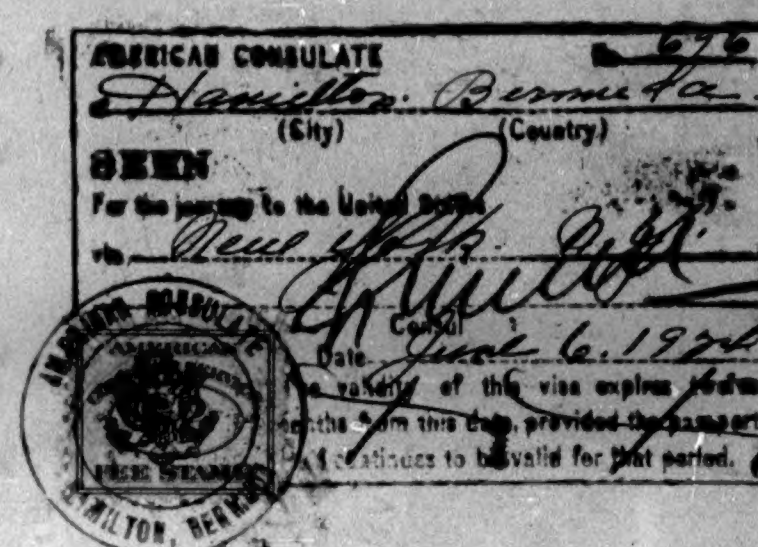 AMERICAN CONSULATE No. 676
Hamilton. Bermuda.
(City) (Country)
SEEN
For the journey to the United States
via New York. N.Y.
Consul
Date June 6. 192
The validity of this visa expires twelve
months from this date, provided the passport
continues to be valid for that period.
AMERICAN CONSULATE
AMERICAN
FEE STAMP
HAMILTON, BERMUDA